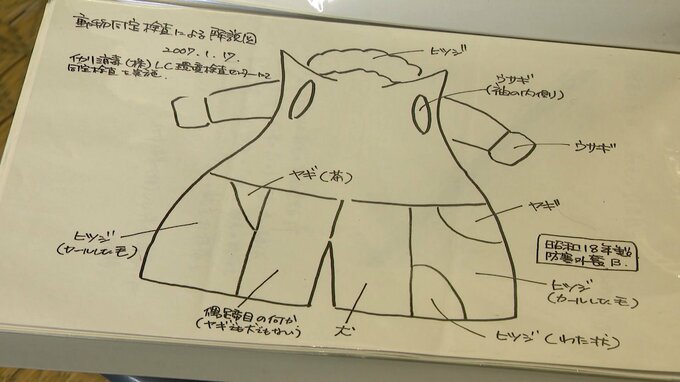 動物同定検査による解説図
2007.1.17.
イカリ消毒(株)LC環境検査センターにて
同定検査を実施.
ヒツジ
ウサギ
(袖の内側)
ウサギ
ヤギ(茶)
ヤギ
ヒツジ
(カールした毛)
昭和18年製
防寒外套B.
ヒツジ
(カールした毛)
偶蹄目の何か
(ヤギでも犬でもない)
犬
ヒツジ(わた状)